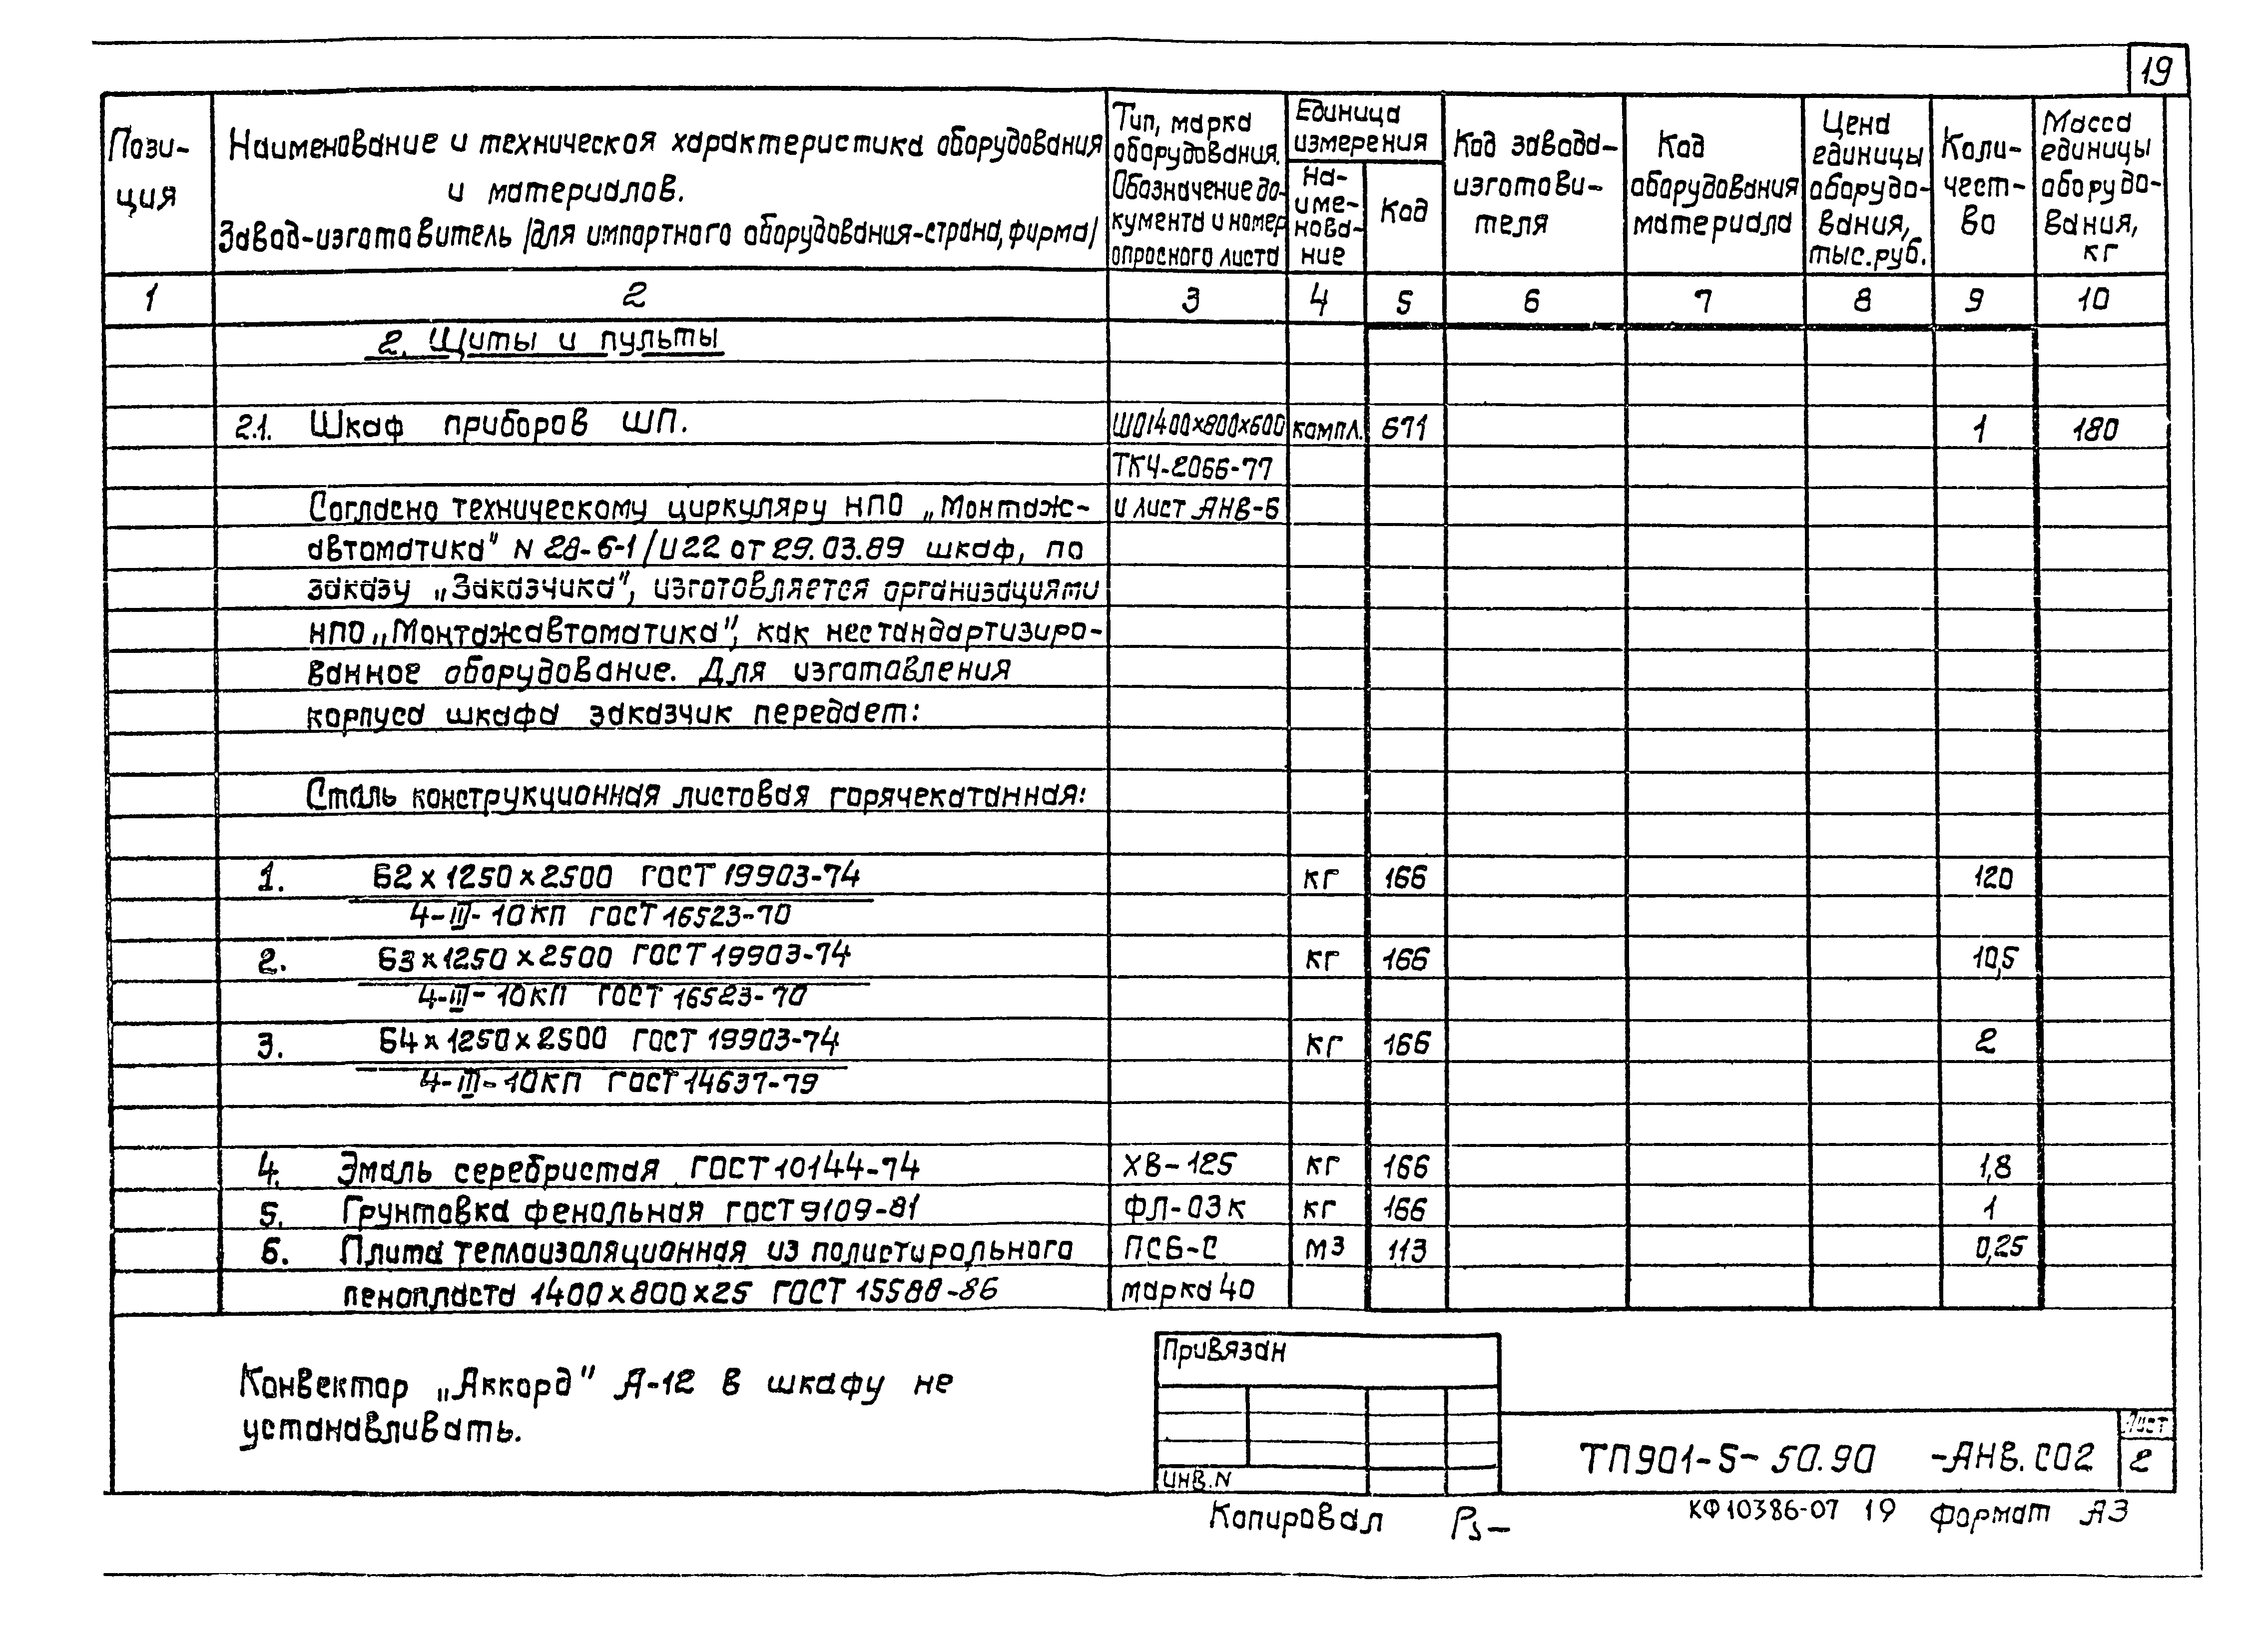 19
Пози-
ция
Наименование и техническая характеристика оборудования
и материалов.
Завод-изготовитель /для импортного оборудования-страна, фирма/
Тип, марка
оборудования.
Обозначение до-
кумента и номер
опросного листа
Единица
измерения
На-
име-
нова-
ние
Код
Код завода-
изготови-
теля
Код
оборудования
материала
Цена
единицы
оборудо-
вания,
тыс.руб.
Коли-
чест-
во
Масса
единицы
оборудо-
вания,
кг
1 2 3 4 5 6 7 8 9 10
2. Щиты и пульты
2.1. Шкаф приборов ШП. ШО1400х800х600 компл. 671 1 180
ТКЧ-2066-77
Согласно техническому циркуляру НПО „Монтаж- и лист АНВ-6
автоматика" N 28-6-1/И22 от 29.03.89 шкаф, по
заказу „Заказчика", изготовляется организациями
НПО „Монтажавтоматика", как нестандартизиро-
ванное оборудование. Для изготовления
корпуса шкафа заказчик передает:
Сталь конструкционная листовая горячекатанная:
1. Б2х1250х2500 ГОСТ 19903-74 кг 166 120
4-III-10КП ГОСТ 16523-70
2. Б3х1250х2500 ГОСТ 19903-74 кг 166 10,5
4-III-10КП ГОСТ 16523-70
3. Б4х1250х2500 ГОСТ 19903-74 кг 166 2
4-III-10КП ГОСТ 14637-79
4. Эмаль серебристая ГОСТ 10144-74 ХВ-125 кг 166 1,8
5. Грунтовка фенольная ГОСТ 9109-81 ФЛ-03К кг 166 1
6. Плита теплоизоляционная из полистирольного ПСБ-С м3 113 0,25
пенопласта 1400х800х25 ГОСТ 15588-86 марка 40
Конвектор „Аккорд" А-12 в шкафу не
устанавливать.
Привязан
ИНВ.N
ТП901-5-50.90 -АНВ.СО2
Лист
2
Копировал
КФ10386-07 19 Формат А3